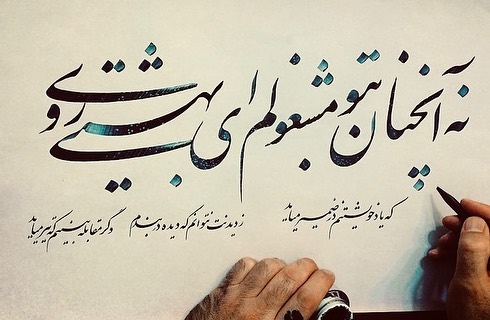 نه آنچنان بتو مشغولم ای بهشتی روی
که یاد خویشتنم در ضمیر میآید ز دیدنت نتوانم که دیده در بندم وگر مقابله بینم که تیر میآید